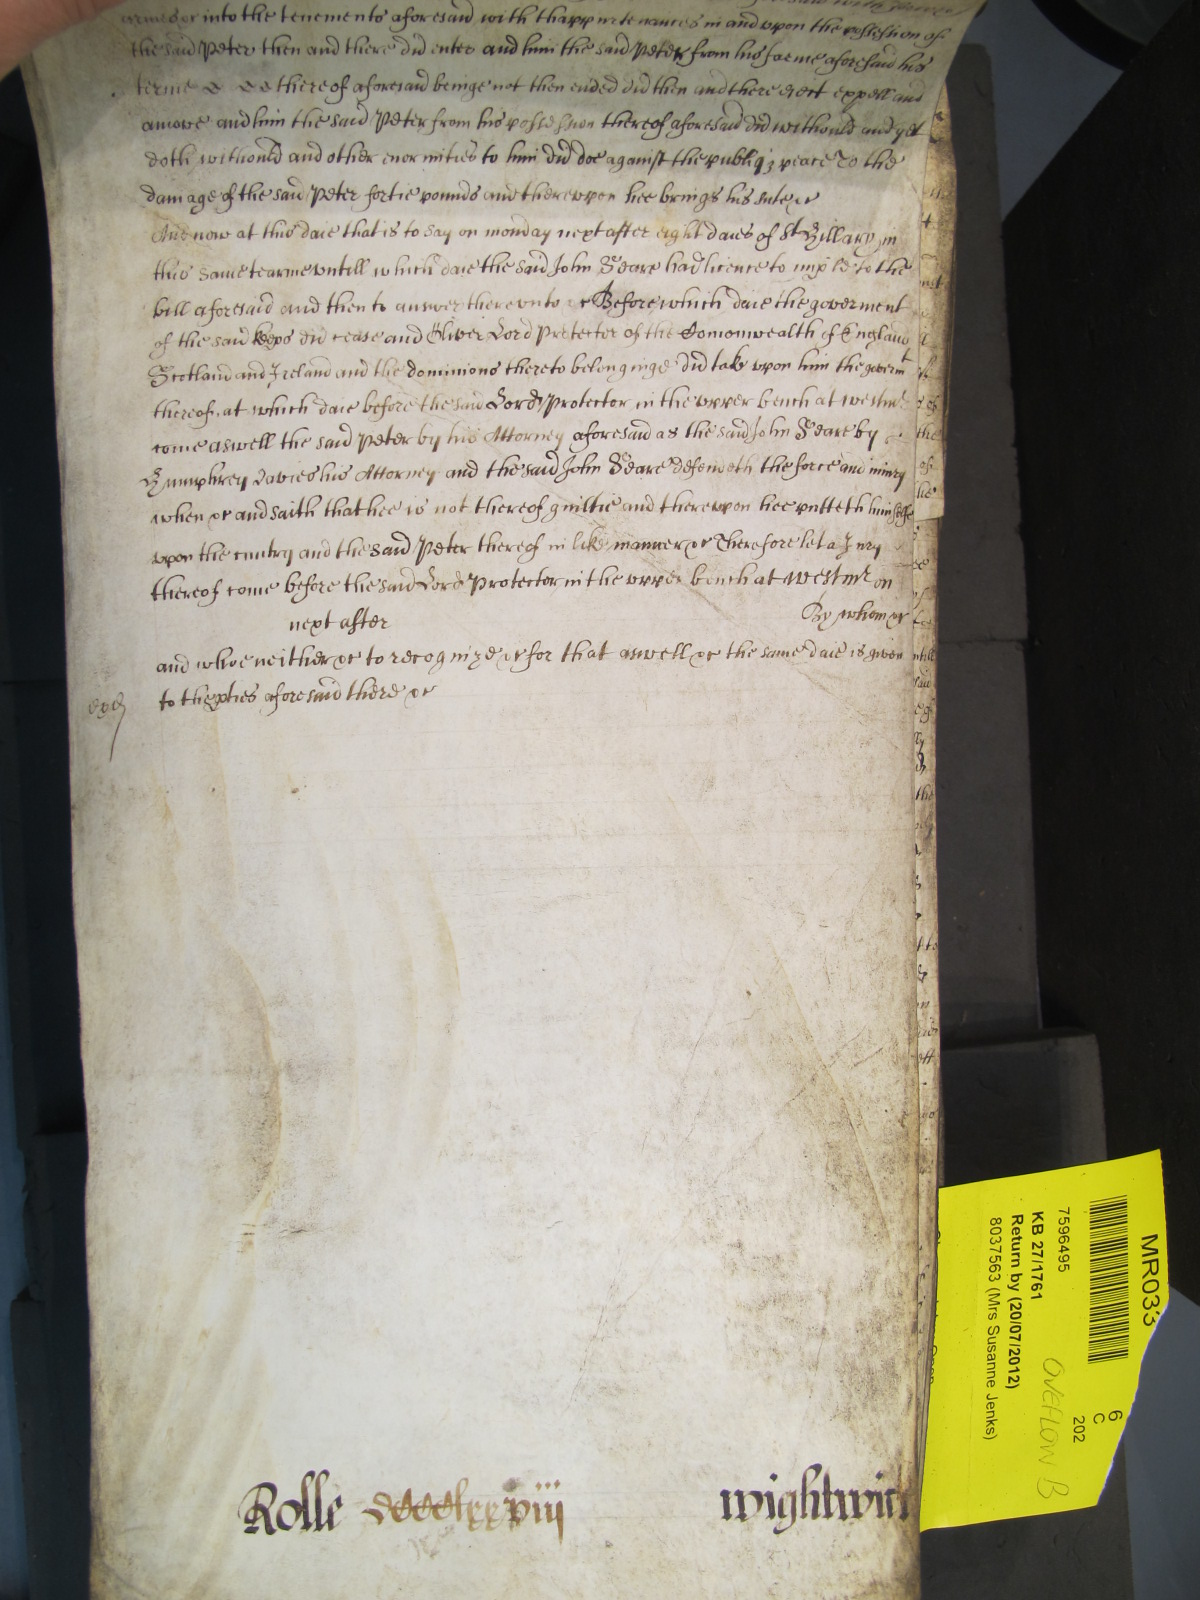 armes &c into the tenements aforesaid with thappurtenances in and upon the possession of
the said Peter then and there did enter and him the said Peter from his farme aforesaid his
terme &c thereof aforesaid beinge not then ended did then and there eiect expell and
amove and him the said Peter from his possession thereof aforesaid did withould and yet
doth withould and other enormities to him did doe against the publiq3 peace To the
damage of the said Peter fortie pounds and thereupon hee brings his sute &c
And now at this daie that is to say on monday next after eight daies of St Hillary in
this same tearme untill which daie the said John Seare had licence to imple to the
bill aforesaid and then to answer thereunto &c Before which daie the goverment
of the said keeps did cease and Oliver Lord Protector of the Comonwealth of England
Scotland and Ireland and the dominions thereto belonginge did take upon him the goverm
thereof at which daie before the said Lord Protector in the upper bench at westmr
come aswell the said Peter by his Attorney aforesaid as the said John Seare by
Humphrey Davies his Attorney and the said John Seare defendeth the force and iniury
when &c and saith that hee is not thereof guiltie and thereupon hee putteth himselfe
upon the cuntry and the said Peter thereof in like manner &c Therefore let a Jury
thereof come before the said Lord Protector in the upper bench at westmr on
next after By whom &c
and whoe neither &c to recognize &c for that aswell &c the same daie is given
to the pties aforesaid there &c
Rolle viij wightwick
MR033
6
C
202
7596495
KB 27/1761
Return by (20/07/2012)
8037563 (Mrs Susanne Jenks)
OVEFLOW B